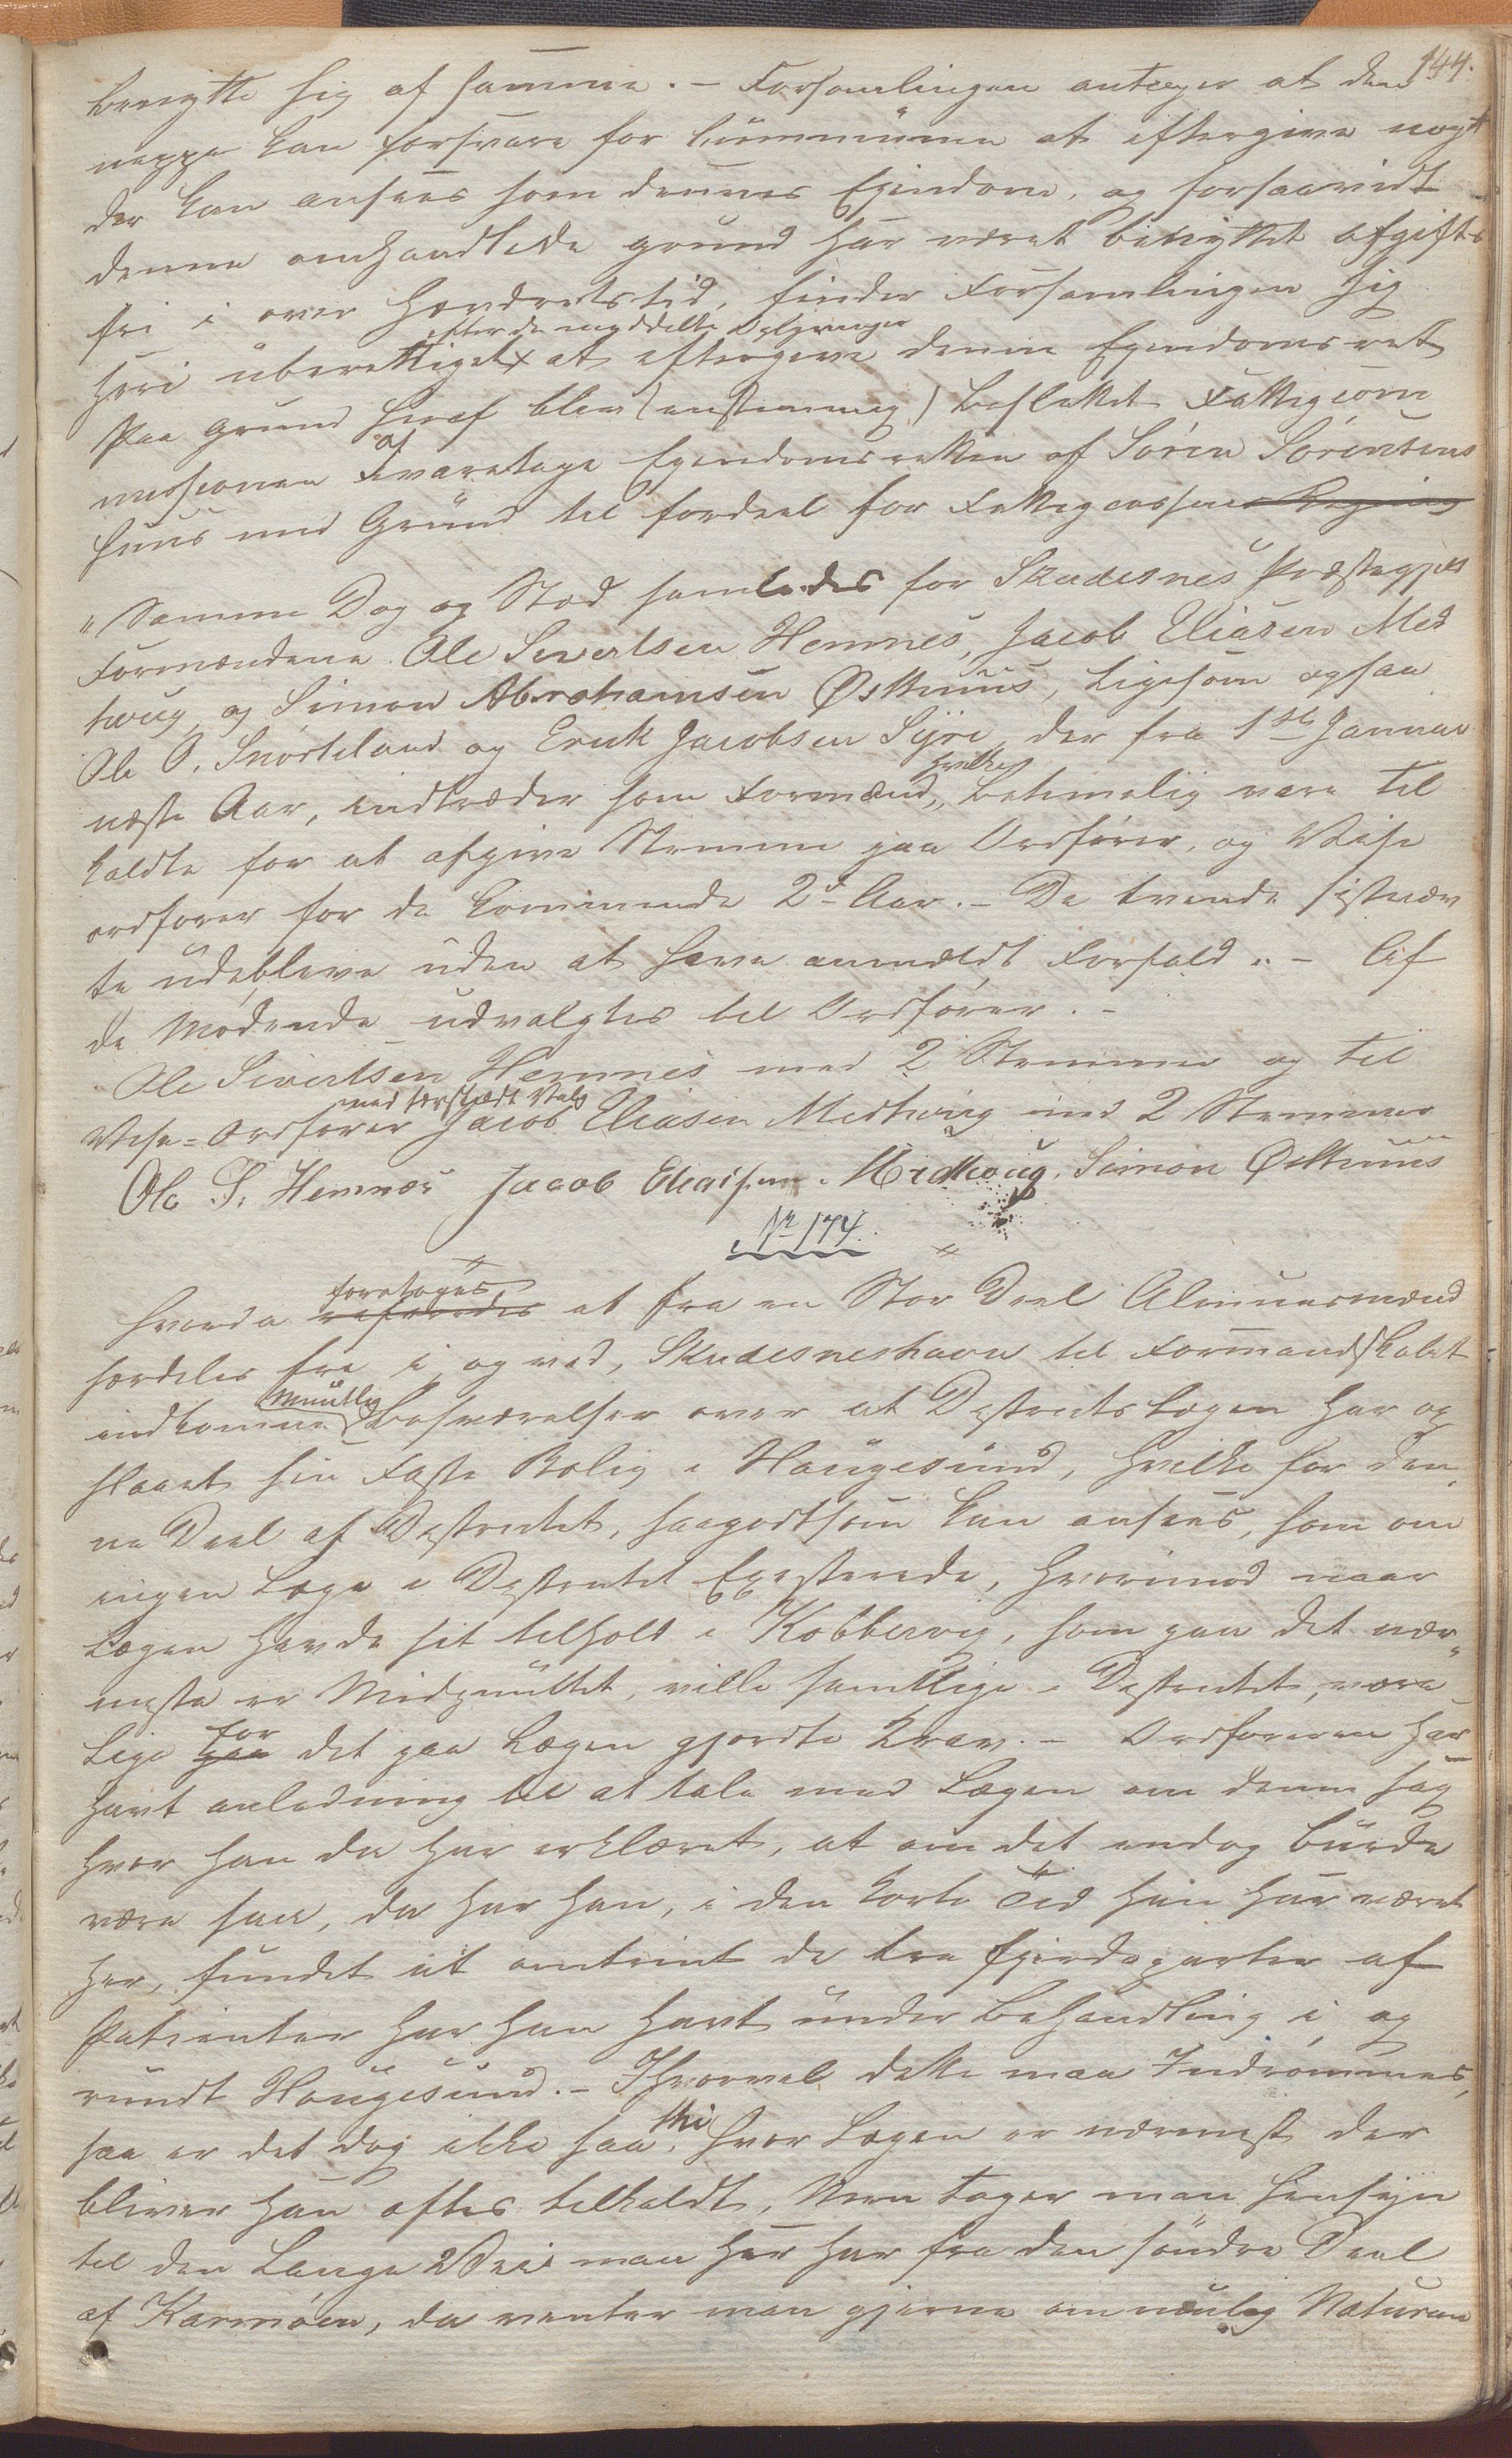 144.
benytte sig af samme. – Forsamlingen antager at den
neppe kan forsvare for Communen at eftergive nogt
der kan ansees som dennes Eiendom, og forsaavidt
denne omhandlede grund har været benyttet afgifts
fri i over Hundretstid, finder Forsamlingen sig
efter de meddelte Oplysninger
heri uberettiget at eftergive denne Eiendomsret
Paa grund heraf blev (enstemmig) besluttet Fattigcom
missionen at ivaretage Eiendomsretten af Søren Sørensens
Huus med Grund til fordeel for Fattigcassens
" Samme Dag og Sted samledes for Skudesnes Præstegjelds
Formændene Ole Sivertsen Hemnes, Jacob Eliasen Med
houg, og Simon Abrahamsen Østhuus, ligesom ogsaa
Ole O. Snørteland og Erik Jacobsen Syre, der fra 1ste Januar
næste Aar, indtræder som Formænd, hvilke betimelig vare til
kaldte for at afgive Stemme paa Ordfører, og Viise
ordfører for de kommende 2de Aar. – De tvende sistnæv
te udebleve uden at have anmeldt Forfald. – Af
de Mødende udvalgtes til Ordfører. –
Ole Sivertsen Hemnes med 2 Stemmer og til
Vise-Ordfører Jacob Eliasen Medhoug med 2 Stemmer
Ole S. Hemnes Jacob Eliassen Midhoug, Simon Østhuus
Nr 174.
foretoges
Hvorda at fra en Stor Deel Almuesmænd
fordeles fra i og ved, Skudesneshavn til Formandskabet
indkomne Muntlig Besværelser over at Destrictslægen har op
slaaet sin Faste Bolig i Haugesund, hvilke for den,
ne Deel af Destrictet, saagodtsom kan ansees, som om
ingen Læge i Destrictet Exesterede, hvorimod naar
Lægen havde sit tilhold i Kobbervig, som paa det nær"
meste er Midpunktet, ville samtlige i Destrictet, være
lige for det paa Lægen gjordte Krav. – Ordføreren har
havt anledning til at tale med Lægen om denne sag
hvor han da har erklæret, at om det endog burde
være saa, da har han, i den korte Tid han har været
her, fundet at omtrent de tre fjerdeparter af
Patienter har han havt under behandling i, og
rundt Haugesund. – Ihvorvel dette maa Indrømmes,
saa er det dog ikke saa, thi hvor Lægen er nærmest der
bliver han oftes tilkaldt, Men tager man Hensyn
til den Lange Vei man her har fra den søndre Deel
af Karmøen, da venter man gjerne om mulig Naturen